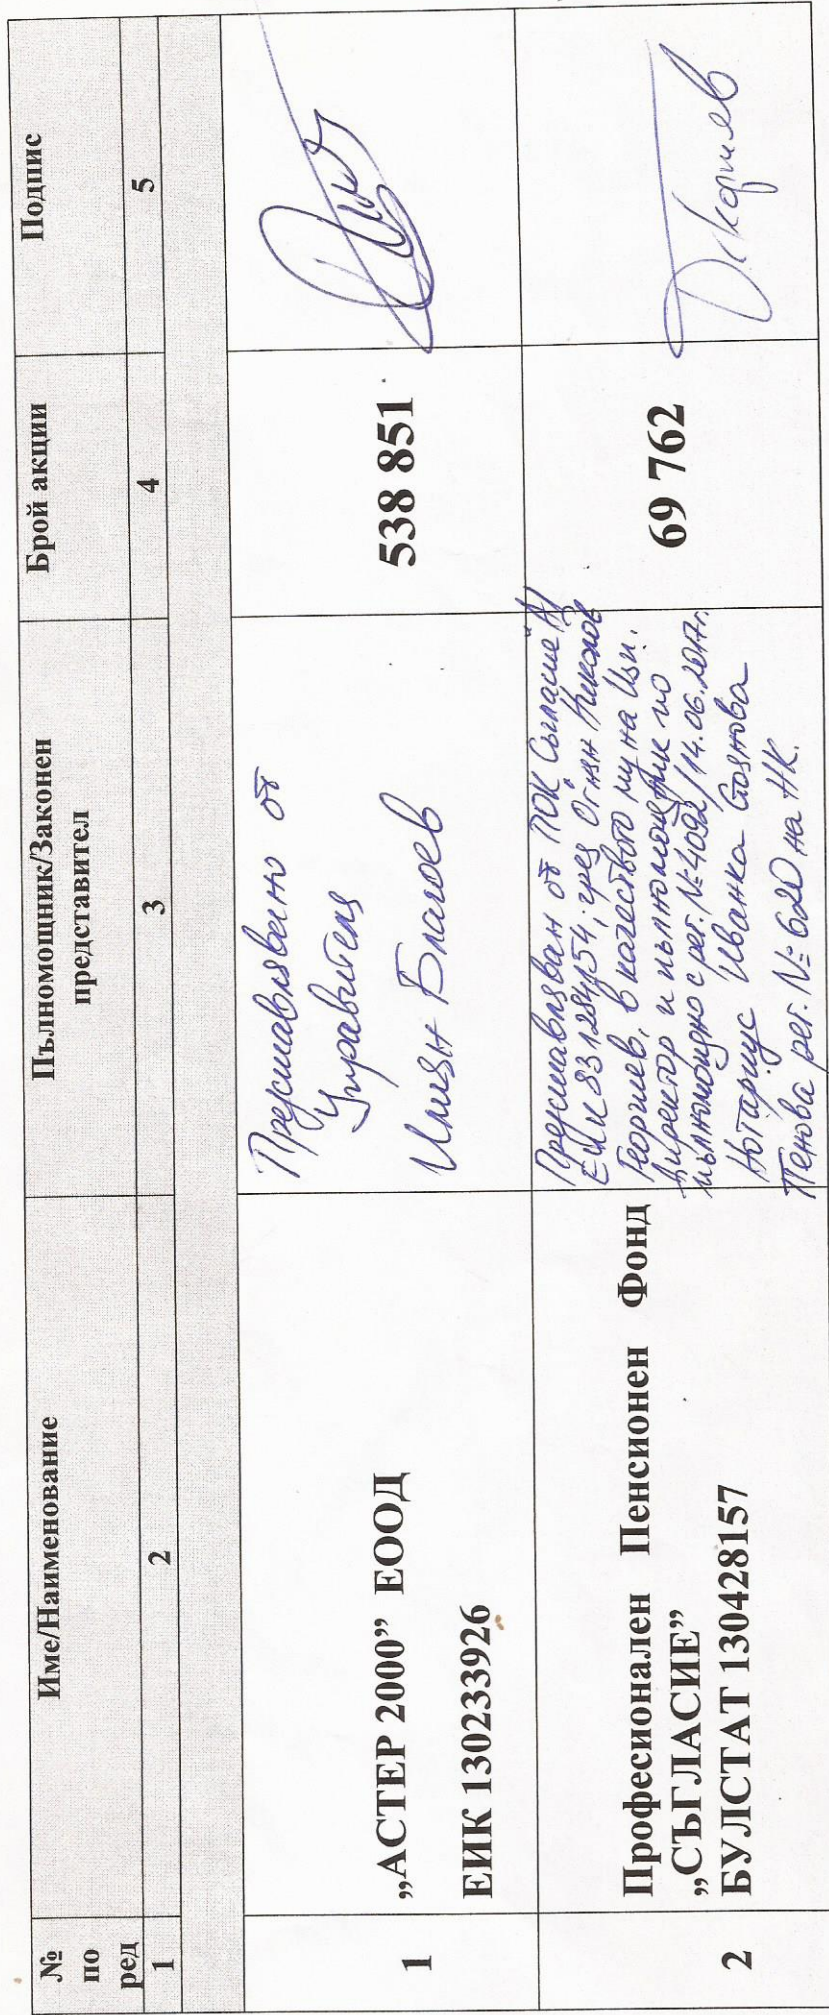 №
по
ред
Име/Наименование
Пълномощник/Законен
представител
Брой акции
Подпис
1
2
3
4
5
1
„АСТЕР 2000” ЕООД
ЕИК 130233926
Представлявано от
Управителя
Илиян Благоев
538 851
2
Професионален Пенсионен Фонд
„СЪГЛАСИЕ”
БУЛСТАТ 130428157
Представляван от ПОК Съгласие АД
ЕИК 831284154, чрез Огнян Николов
Георгиев, в качеството му на Изп.
Директор и пълномощник по
пълномощно с рег. № 4092/14.06.2017г.
Нотариус Иванка Стоянова
Пенова рег. № 620 на НК.
69 762